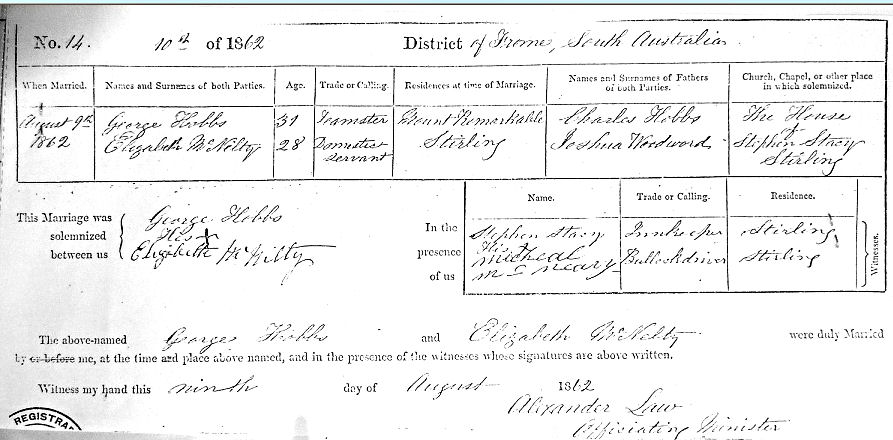 No. 14. 10th of 1862 District of Frome, South Australia
When Married. Names and Surnames of both Parties. Age. Trade or Calling. Residences at time of Marriage. Names and Surnames of Fathers of both Parties. Church, Chapel, or other place in which solemnized.
August 9th George Hobbs 31 Teamster Mount Remarkable Charles Hobbs The House
1862 Elizabeth McNelty 28 Domestic Servant Stirling Joshua Woodword of Stephen Stacy
Stirling
Name. Trade or Calling. Residence.
This Marriage was George Hobbs In the Stephen Stacy Innkeeper Stirling
solemnized His X presence His Micheal Bullockdriver Stirling
between us Elizabeth McNilty of us McNeary
Witnesses.
The above-named George Hobbs and Elizabeth McNelty were duly Married
by or before me, at the time and place above named, and in the presence of the witnesses whose signatures are above written.
Witness my hand this ninth day of August 1862
Alexander Law
Officiating Minister
REGISTRA